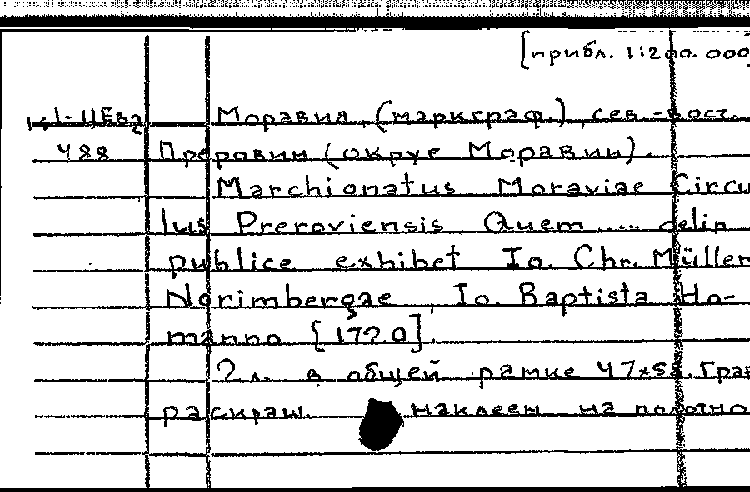 [прибл. 1:200.000
К1-ЦЕв2 Моравия (маркграф.), сев.-вост.
488 Преровин (округ Моравии).
Marchionatus Moraviae Circu
lus Preroviensis Quem .... delin
publice exhibet Io. Chr. Müller
Norimbergae, Io. Baptista Ho-
manno [17?0].
2 л. в общей рамке 47x58. Грав
раскраш. наклеен на полотно